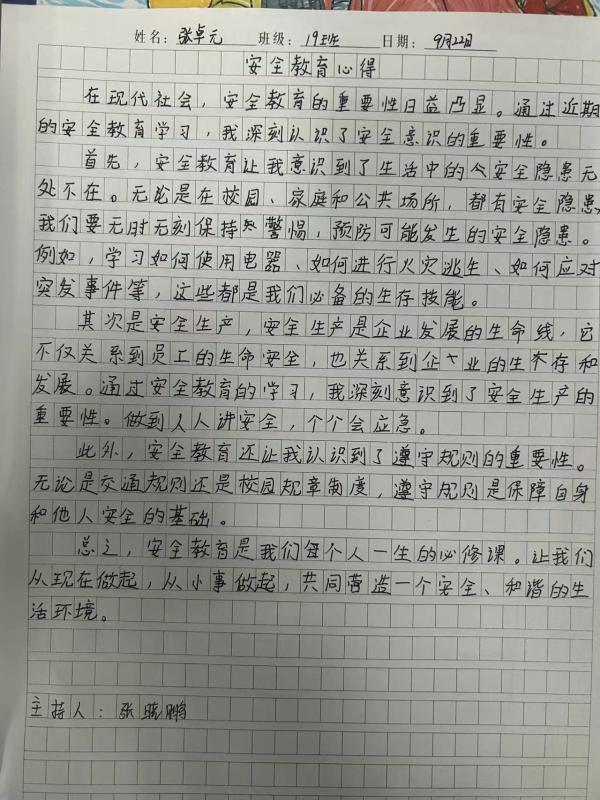 姓名：张卓元 班级：19班 日期：9月22日
安全教育心得
在现代社会，安全教育的重要性日益凸显。通过近期
的安全教育学习，我深刻认识了安全意识的重要性。
首先，安全教育让我意识到了生活中的安全隐患无
处不在。无论是在校园、家庭和公共场所，都有安全隐患，
我们要无时无刻保持警惕，预防可能发生的安全隐患。
例如，学习如何使用电器、如何进行火灾逃生、如何应对
突发事件等，这些都是我们必备的生存技能。
其次是安全生产，安全生产是企业发展的生命线，它
不仅关系到员工的生命安全，也关系到企业的生存和
发展。通过安全教育的学习，我深刻意识到了安全生产的
重要性。做到人人讲安全，个个会应急。
此外，安全教育还让我认识到了遵守规则的重要性。
无论是交通规则还是校园规章制度，遵守规则是保障自身
和他人安全的基础。
总之，安全教育是我们每个人一生的必修课。让我们
从现在做起，从小事做起，共同营造一个安全、和谐的生
活环境。
主持人：张晓鹏